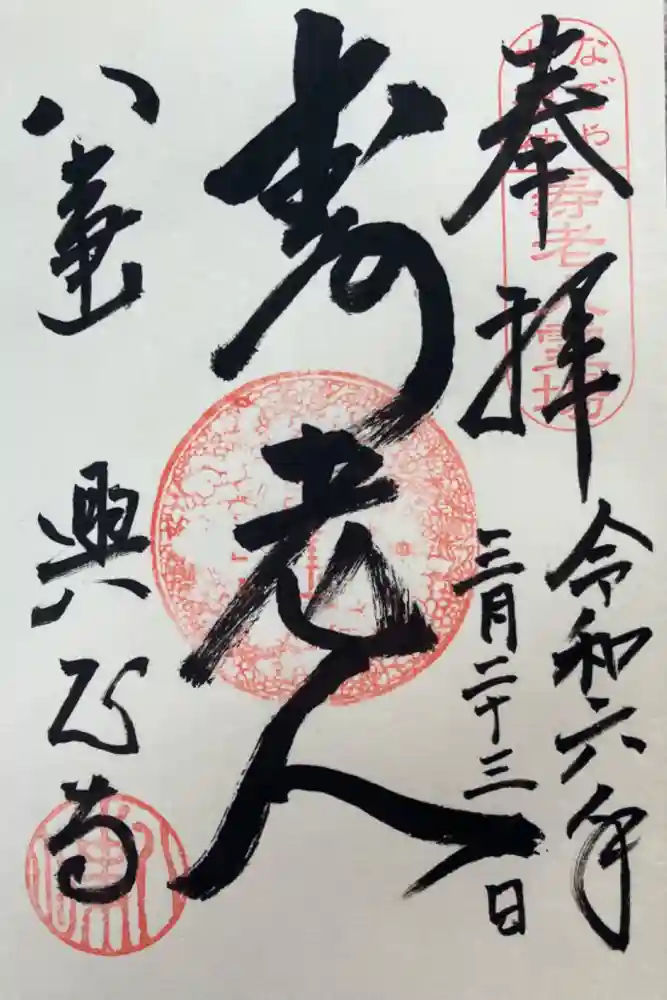 奉拝
令和六年
三月二十三日
寿老人
八事山
興正寺
なごや
寿老人霊場